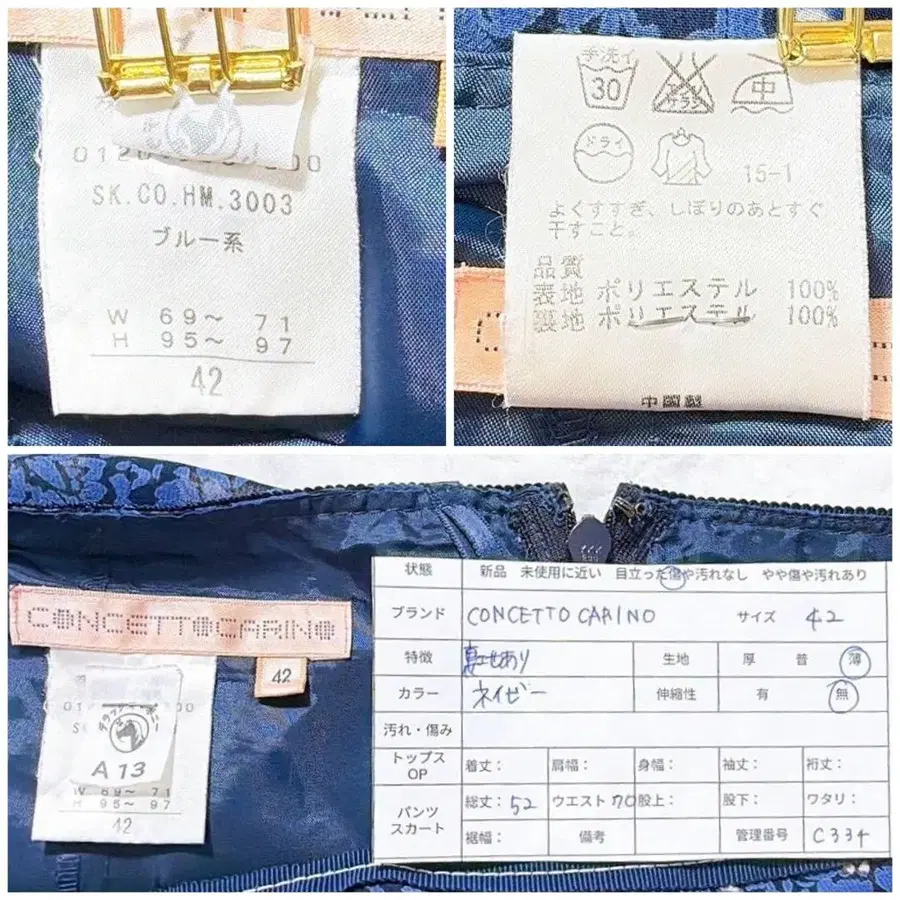 SK.CO.HM.3003
ブルー系
W 69〜 71
H 95〜 97
42
手洗イ
30
中
ドライ
15-1
よくすすぎ、しぼりのあとすぐ
干すこと。
品質
表地 ポリエステル 100%
裏地 ポリエステル 100%
中国製
CONCETTOCARINO
42
A 13
W 69〜 71
H 95〜 97
42
状態 新品 未使用に近い 目立った傷や汚れなし やや傷や汚れあり
ブランド CONCETTO CARINO サイズ 42
特徴 裏地あり 生地 厚 普 薄
カラー ネイビー 伸縮性 有 無
汚れ・傷み
トップス OP 着丈: 肩幅: 身幅: 袖丈: 裄丈:
パンツ スカート 総丈: 52 ウエスト 70 股上: 股下: ワタリ:
裾幅: 備考 管理番号 C334